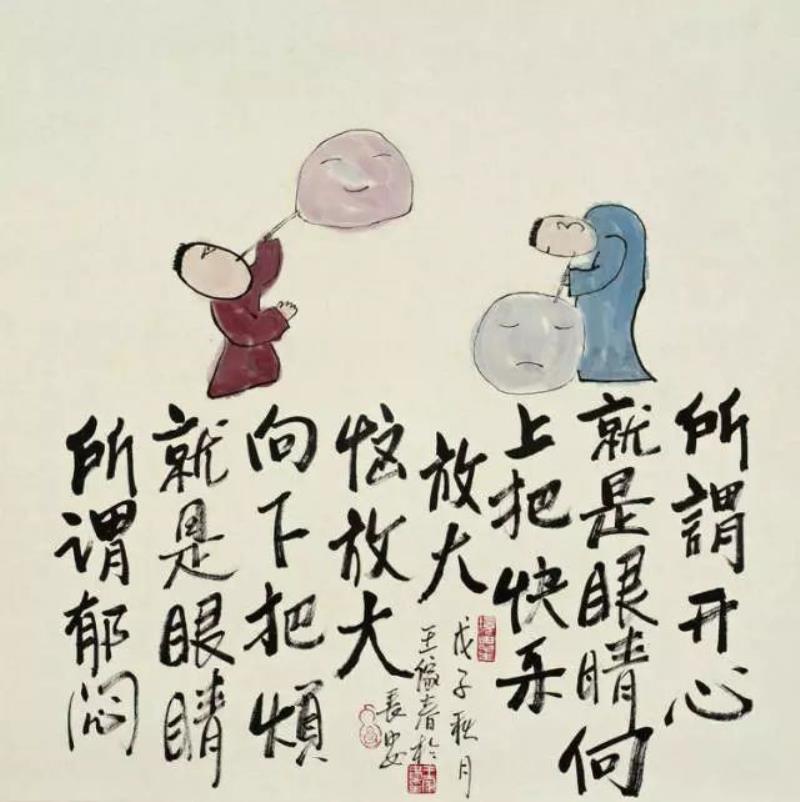 所謂开心
就是眼睛向
上把快乐
放大
所谓郁闷
就是眼睛
向下把煩
恼放大
戊子秋月
春於
長安